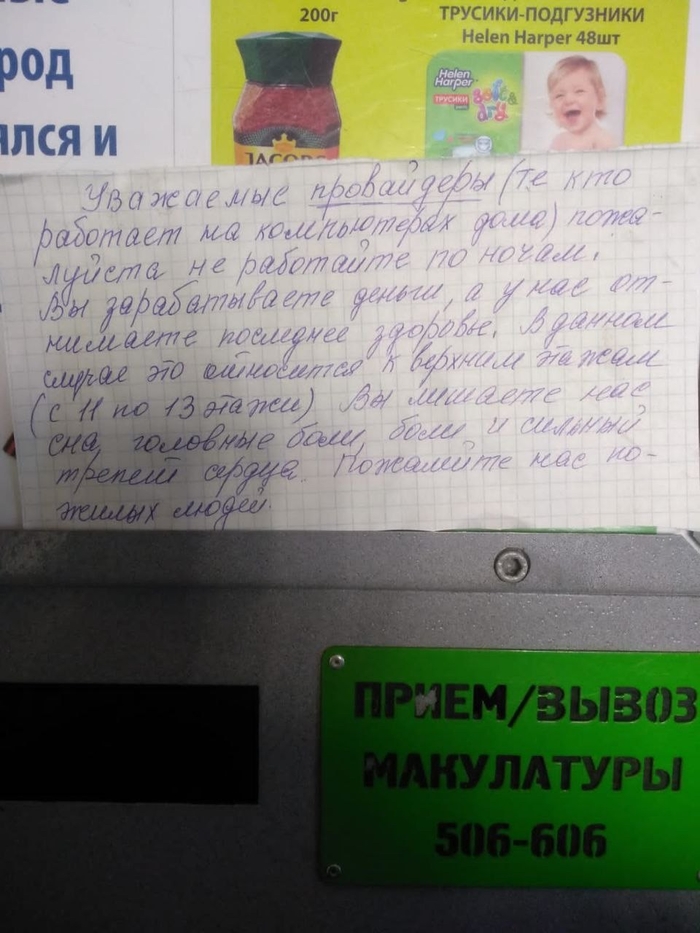 200г
ТРУСИКИ-ПОДГУЗНИКИ
Helen Harper 48шт
род
ялся и
Helen
Harper
ТРУСИКИ
soft&
dry
JACOBS
Уважаемые провайдеры (те кто
работает на компьютерах дома) пожа-
луйста не работайте по ночам.
Вы зарабатываете деньги, а у нас от-
нимаете последнее здоровье. В данном
случае это относится к верхним этажам
(с 11 по 13 этажи). Вы лишаете нас
сна, головные боли, боли и сильный
трепет сердца. Пожалейте нас по-
жилых людей.
ПРИЕМ/ВЫВОЗ
МАКУЛАТУРЫ
506-606